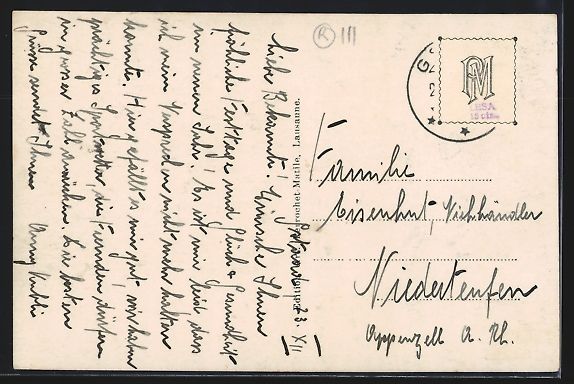 Gstaad, 23. XII
Liebe Bekannte! Wünsche Ihnen
fröhliche Festtage und Glück & Gesundheit
im neuen Jahr! Es ist mir leid, dass
ich mein Versprechen nicht mehr halten
konnte. Hier gefällt es mir gut, wir haben
prächtiges Sportwetter, die Fremden dürfen
in grosser Zahl anrücken. Die besten
Grüsse sendet Ihnen
Anny
Perrochet-Matile, Lausanne.
R III
PM
G
Familie
Eisenhut, Viehhändler
Niederteufen
Appenzell A. Rh.